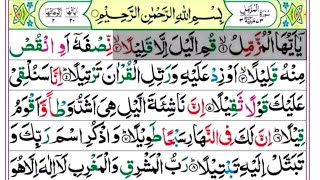 بِسْمِ اللّٰهِ الرَّحْمٰنِ الرَّحِيْمِ
يٰۤاَيُّهَا الْمُزَّمِّلُ ۙ قُمِ الَّيْلَ اِلَّا قَلِيْلًا ۙ نِّصْفَهٗۤ اَوِ انْقُصْ
مِنْهُ قَلِيْلًا ۙ اَوْ زِدْ عَلَيْهِ وَرَتِّلِ الْقُرْاٰنَ تَرْتِيْلًا ؕ اِنَّا سَنُلْقِيْ
عَلَيْكَ قَوْلًا ثَقِيْلًا اِنَّ نَاشِئَةَ الَّيْلِ هِيَ اَشَدُّ وَطْاً وَّاَقْوَمُ
قِيْلًا ؕ اِنَّ لَكَ فِي النَّهَارِ سَبْحًا طَوِيْلًا ؕ وَاذْكُرِ اسْمَ رَبِّكَ وَ
تَبَتَّلْ اِلَيْهِ تَبْتِيْلًا ؕ رَبُّ الْمَشْرِقِ وَالْمَغْرِبِ لَاۤ اِلٰهَ اِلَّا هُوَ